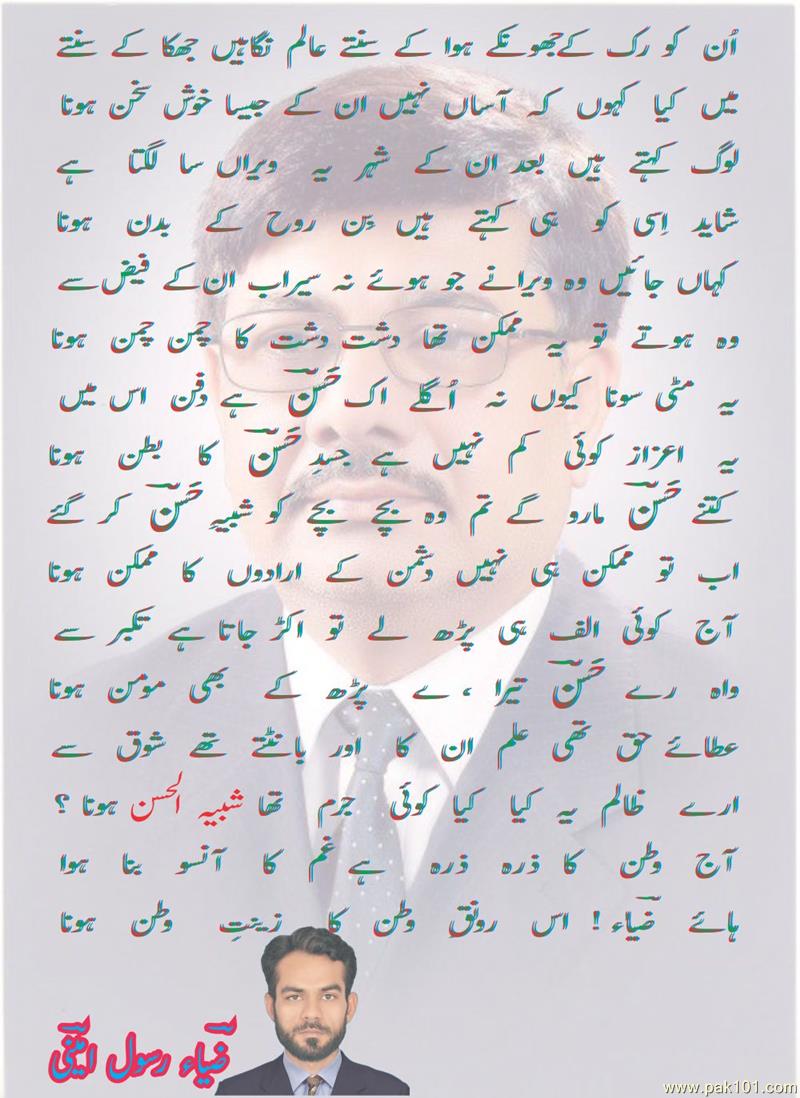 اُن کو رک کے جھونکے ہوا کے سنتے عالم نگاہیں جھکا کے سنتے
میں کیا کہوں کہ آساں نہیں ان کے جیسا خوش سخن ہونا
لوگ کہتے ہیں بعد ان کے شہر یہ ویراں سا لگتا ہے
شاید اِسی کو ہی کہتے ہیں بِن روح کے بدن ہونا
کہاں جائیں وہ ویرانے جو ہوئے نہ سیراب ان کے فیض سے
وہ ہوتے تو یہ ممکن تھا دشت دشت کا چمن چمن ہونا
یہ مٹی سونا کیوں نہ اُگلے اک حَسَن ہے دفن اس میں
یہ اعزاز کوئی کم نہیں ہے جسدِ حَسَن کا بطن ہونا
کتنے حَسَن مارو گے تم وہ بچے بچے کو شبیہِ حَسَن کر گئے
اب تو ممکن ہی نہیں دشمن کے ارادوں کا ممکن ہونا
آج کوئی الف ہی پڑھ لے تو اکڑ جاتا ہے تکبر سے
واہ رے حَسَن تیرا ، ے پڑھ کے بھی مومن ہونا
عطائے حق تھی علم ان کا اور بانٹتے تھے شوق سے
ارے ظالم یہ کیا کیا کوئی جرم تھا شبیہ الحسن ہونا ؟
آج وطن کا ذرہ ذرہ ہے غم کا آنسو بنا ہوا
ہائے ضیاء ! اس رونقِ وطن کا زینتِ وطن ہونا
ضیاء رسول امینی
www.pak101.com